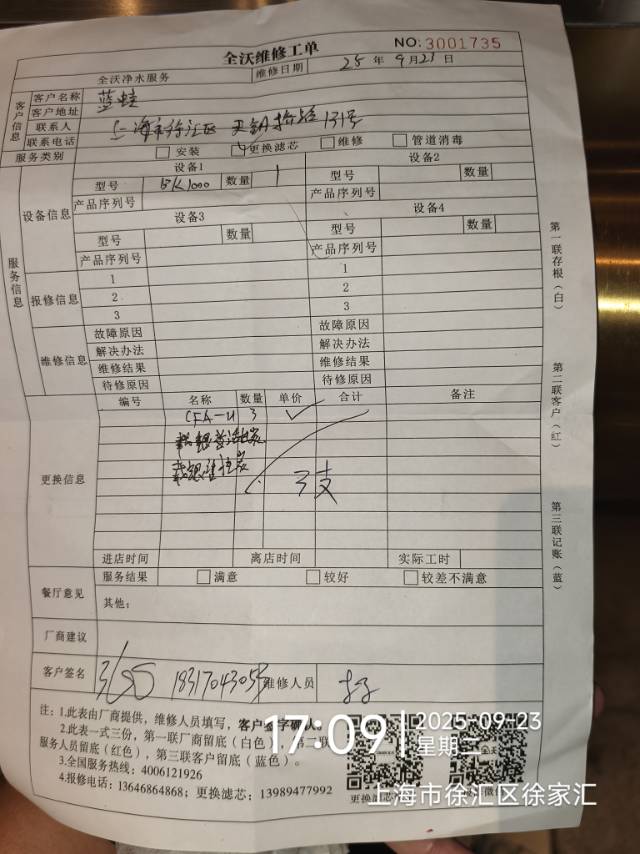 全沃维修工单
NO:3001735
全沃净水服务 维修日期 25 年 9 月 21 日
客户信息
客户名称 蓝蛙
客户地址 上海市徐汇区 天钥桥路131号
联系人
联系电话
服务类别 安装 更换滤芯 维修 管道消毒
服务信息
设备信息
设备1 设备2
型号 数量 1 型号 数量
产品序列号 产品序列号
设备3 设备4
型号 数量 型号 数量
产品序列号 产品序列号
报修信息
1 1
2 2
3 3
维修信息
故障原因 故障原因
解决办法 解决办法
维修结果 维修结果
待修原因 待修原因
更换信息
编号 名称 数量 单价 合计 备注
CFA-U 3
3支
进店时间 离店时间 实际工时
餐厅意见
服务结果 满意 较好 较差不满意
其他:
厂商建议
客户签名 维修人员
注: 1.此表由厂商提供，维修人员填写，客户签字确认。
2.此表一式三份，第一联厂商留底（白色）第二联
服务人员留底（红色），第三联客户留底（蓝色）。
3.全国服务热线: 4006121926
4.报修电话: 13646864868; 更换滤芯: 13989477992
更换滤芯
第一联存根（白）
第二联客户（红）
第三联记账（蓝）
17:09
2025-09-23
星期二
上海市徐汇区徐家汇